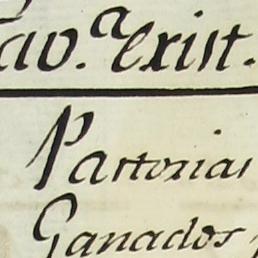 av.ª exist.
Pastorias
Ganados